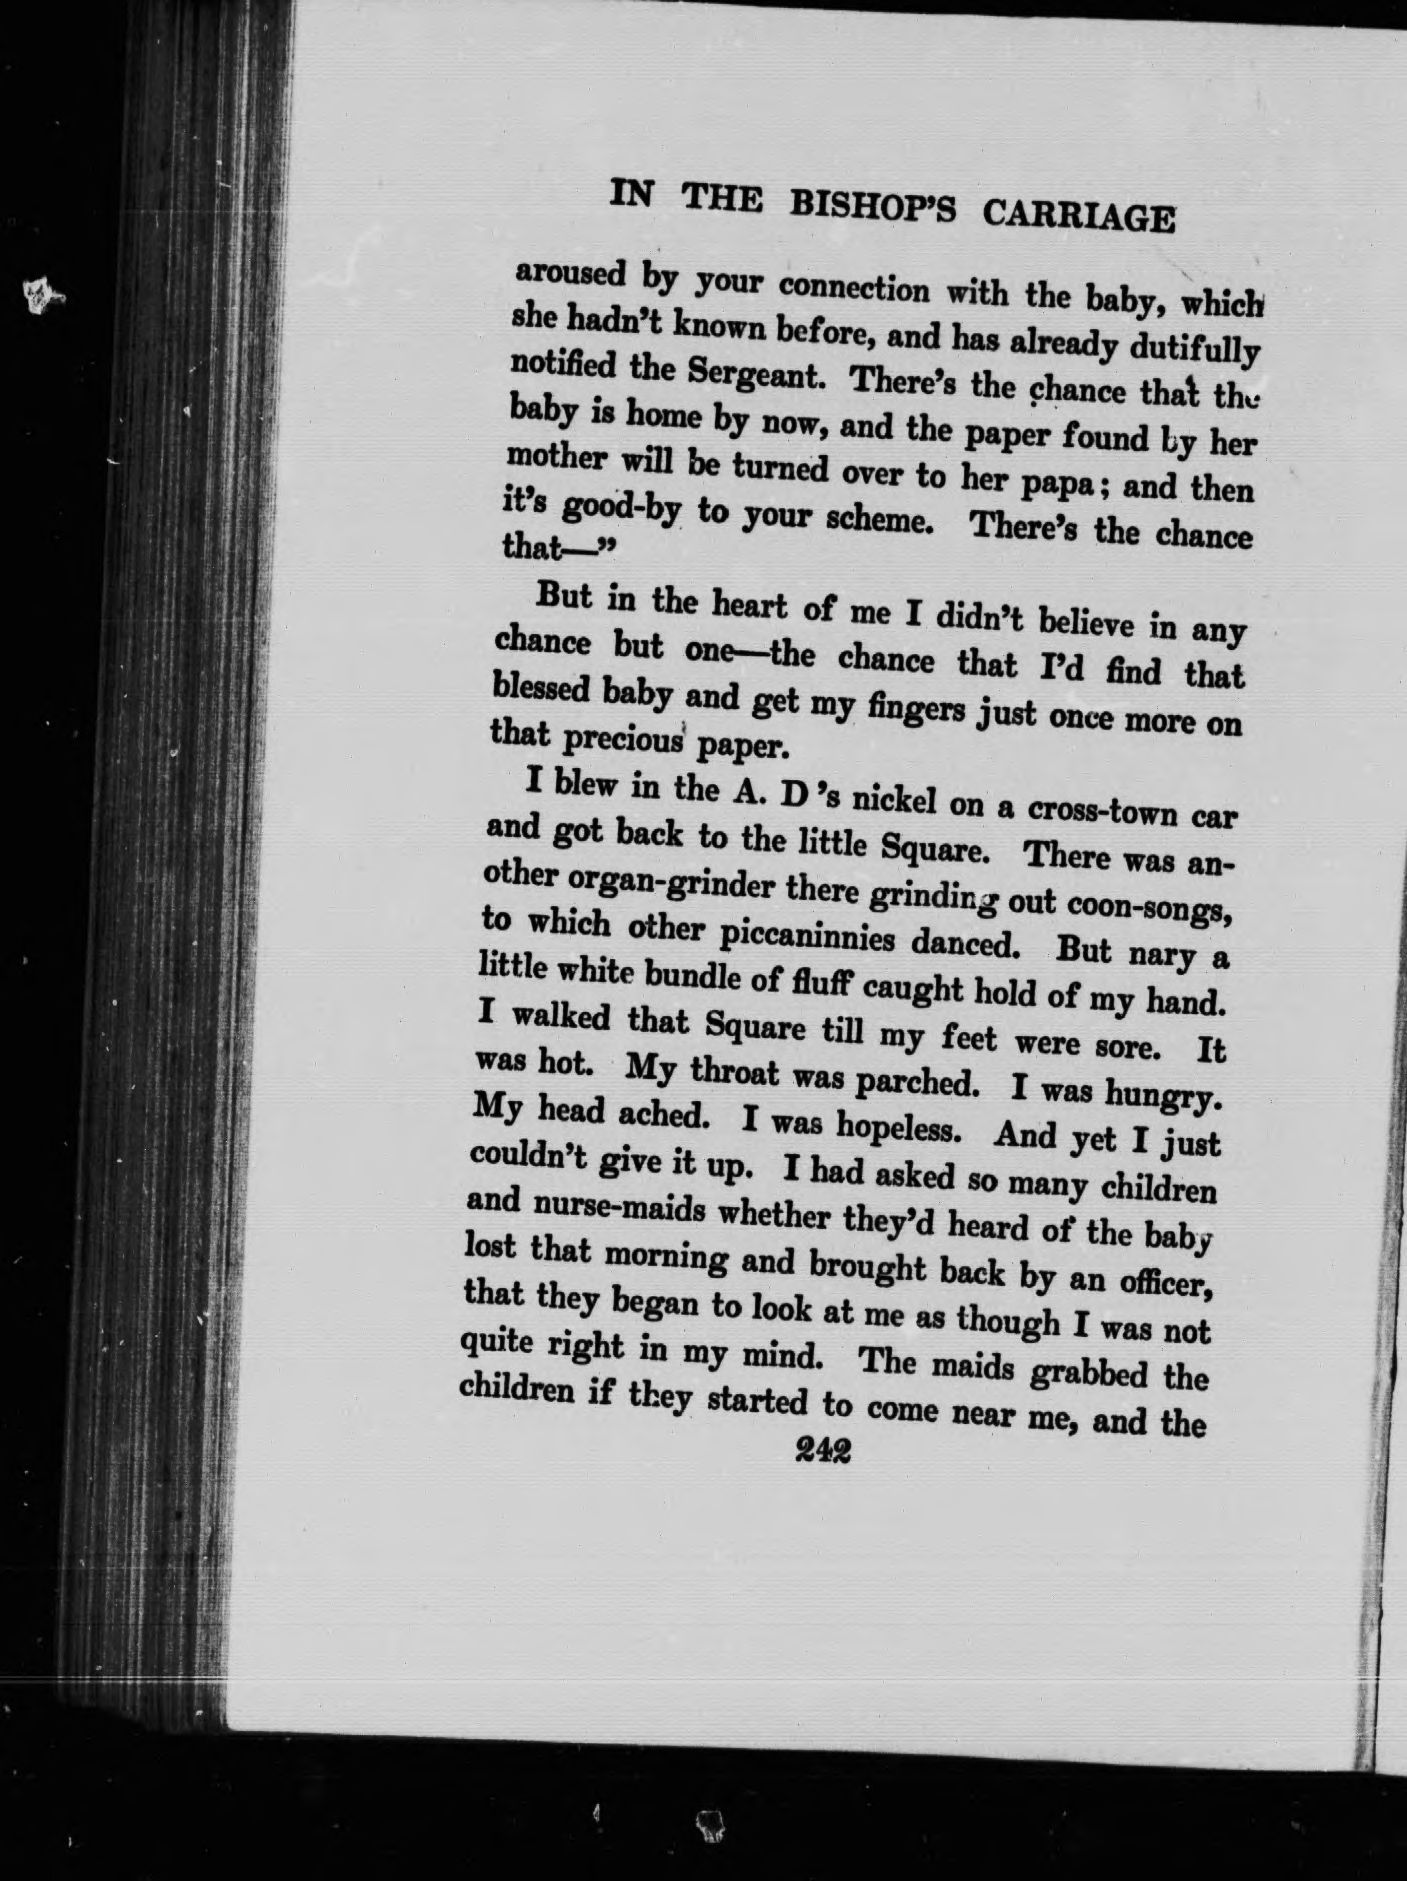 IN THE BISHOP'S CARRIAGE
aroused by your connection with the baby, which
she hadn't known before, and has already dutifully
notified the Sergeant. There's the chance that the
baby is home by now, and the paper found by her
mother will be turned over to her papa; and then
it's good-by to your scheme. There's the chance
that—"
But in the heart of me I didn't believe in any
chance but one—the chance that I'd find that
blessed baby and get my fingers just once more on
that precious paper.
I blew in the A. D 's nickel on a cross-town car
and got back to the little Square. There was an-
other organ-grinder there grinding out coon-songs,
to which other piccaninnies danced. But nary a
little white bundle of fluff caught hold of my hand.
I walked that Square till my feet were sore. It
was hot. My throat was parched. I was hungry.
My head ached. I was hopeless. And yet I just
couldn't give it up. I had asked so many children
and nurse-maids whether they'd heard of the baby
lost that morning and brought back by an officer,
that they began to look at me as though I was not
quite right in my mind. The maids grabbed the
children if they started to come near me, and the
242